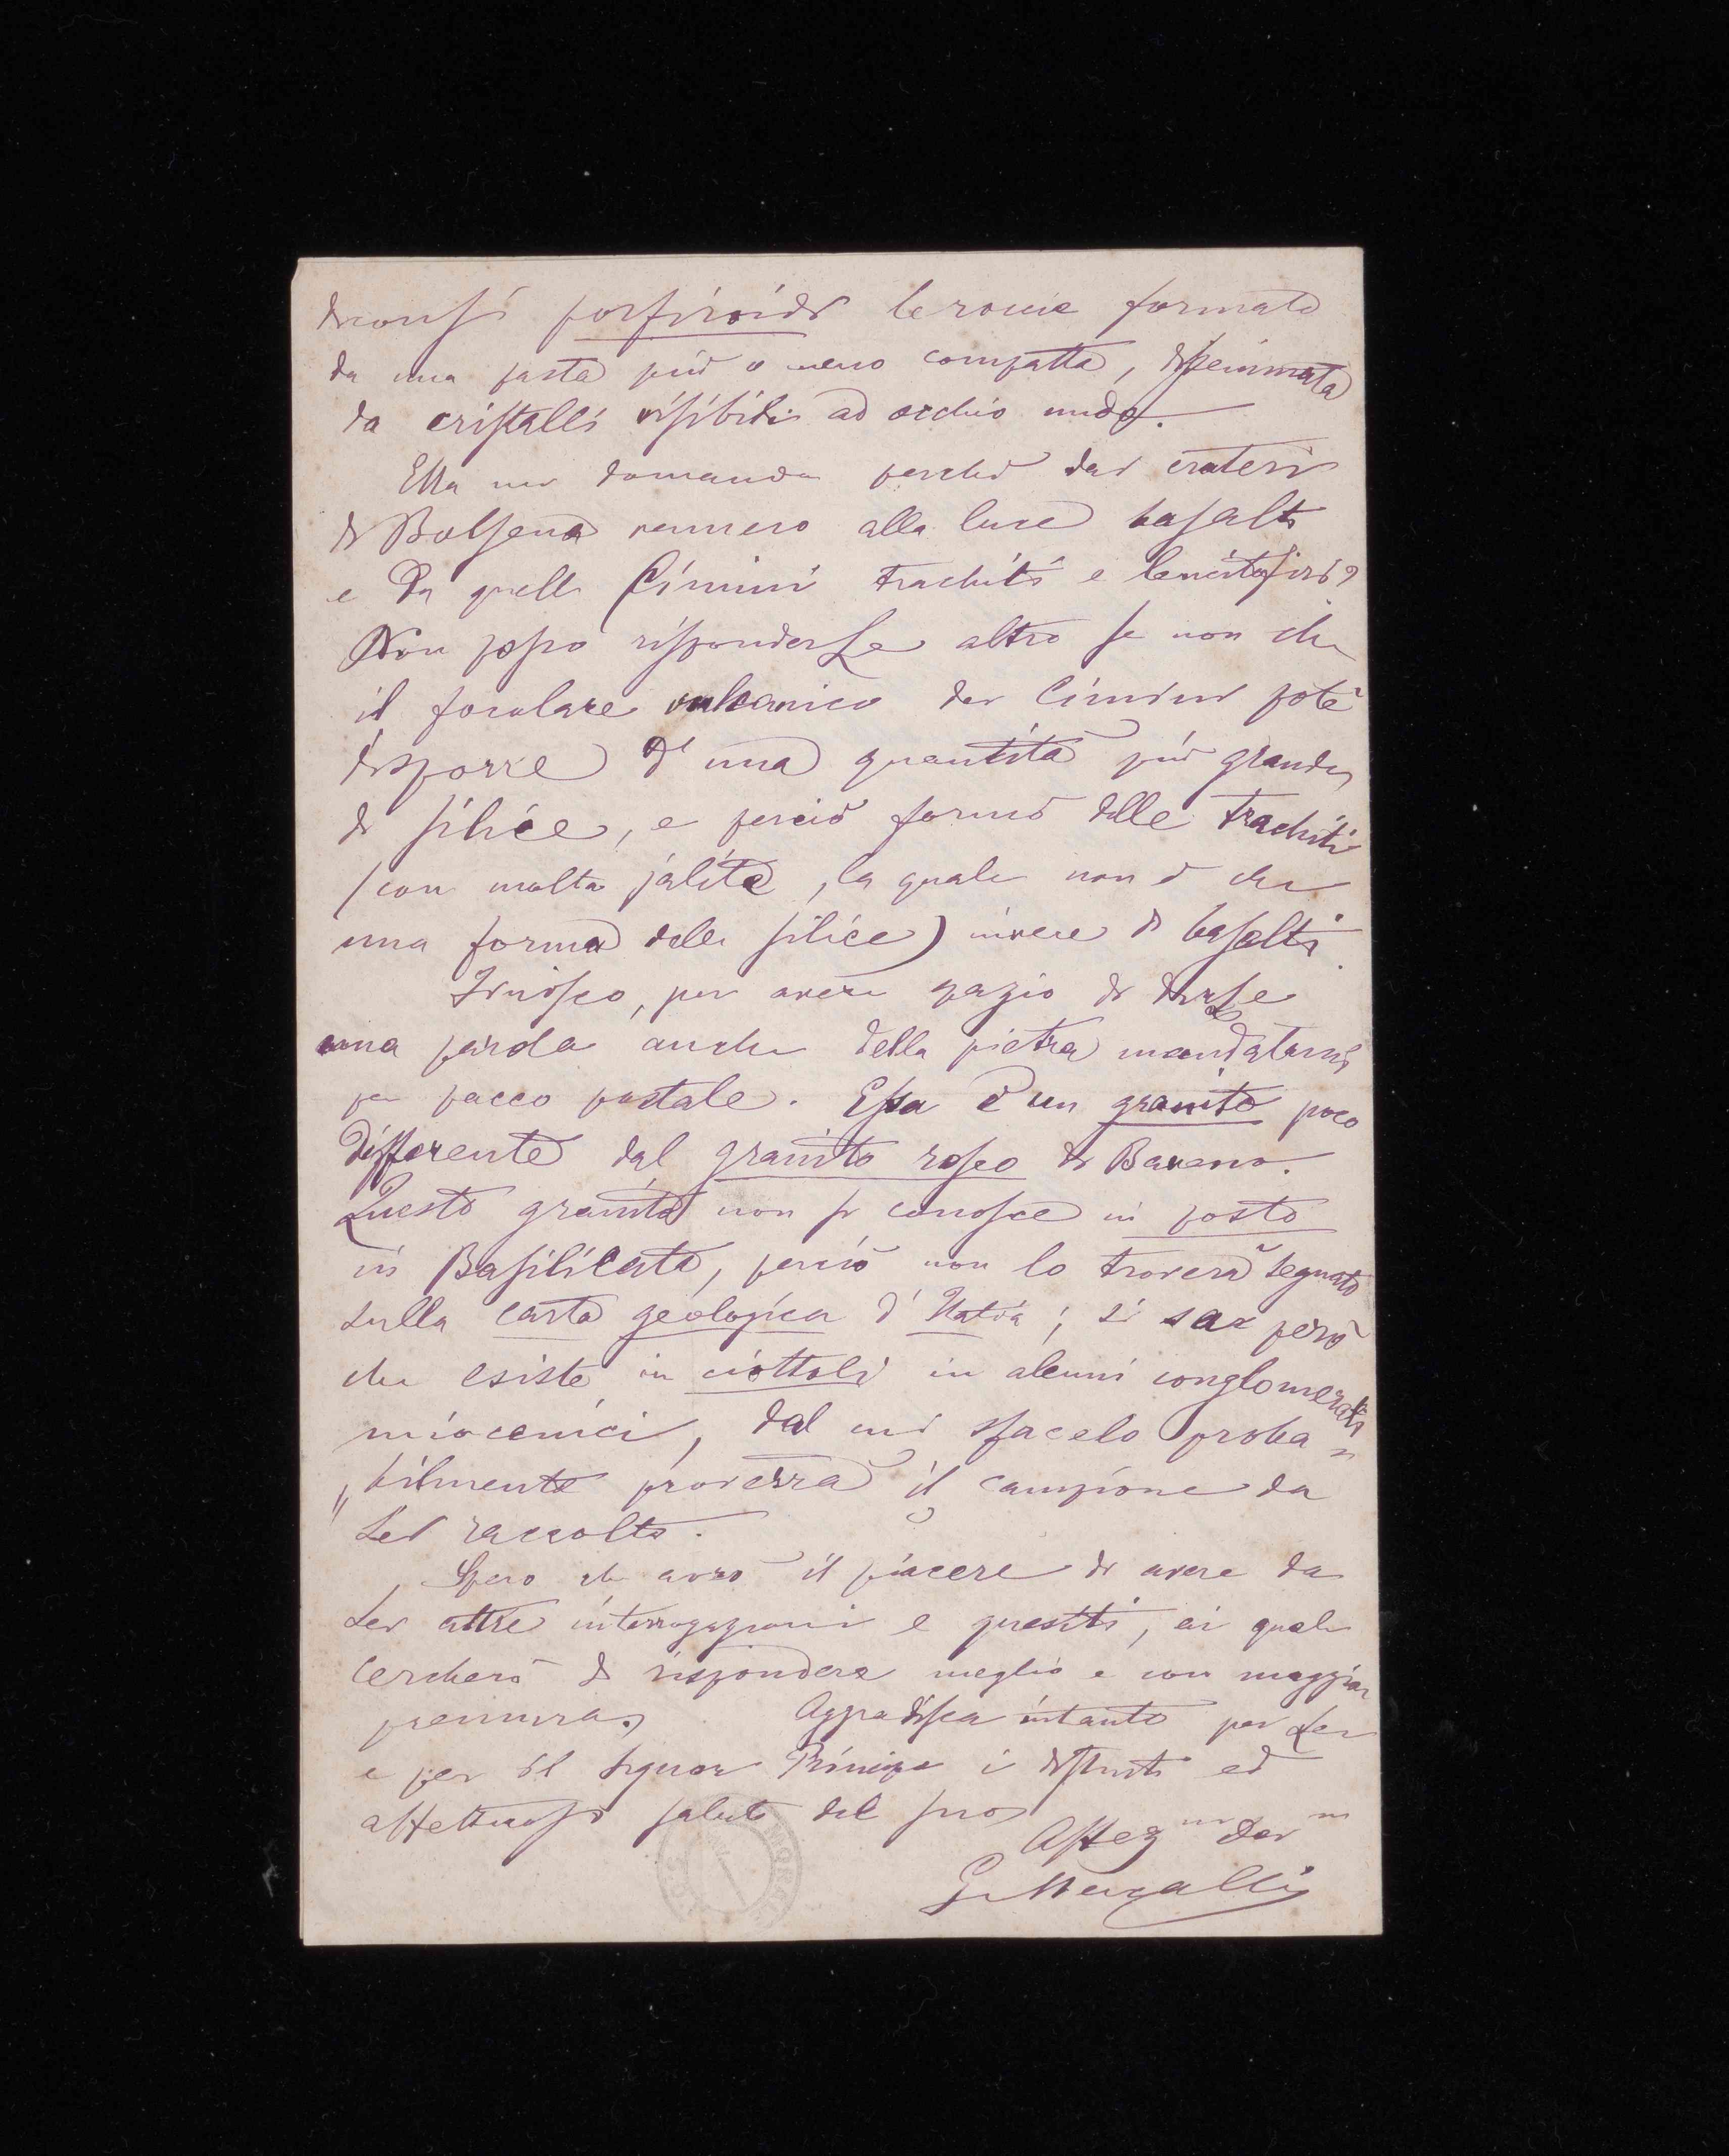 diconsi porfiroidi le roccie formate
da una pasta più o meno compatta, disseminata
da cristalli visibili ad occhio nudo.
Ella mi domanda perchè dai crateri
di Bolsena vennero alla luce basalti
e da quelli Cimini trachiti e leucitofiri?
Non posso risponderLe altro se non che
il focolare vulcanico dei Cimini potè
disporre d'una quantità più grande
di silice, e perciò formò delle trachiti
(con molta jalite, la quale non è che
una forma della silice) invece di basalti.
Finisco, per avere spazio di dirLe
una parola anche della pietra mandatami
per pacco postale. Essa è un granito poco
differente dal granito roseo di Baveno.
Questo granito non si conosce in posto
in Basilicata, perciò non lo troverà segnato
sulla carta geologica d'Italia; si sa però
che esiste in ciottoli in alcuni conglomerati
miocenici, dal cui sfacelo proba=
"bilmente proverrà il campione da
Lei raccolto.
Spero che avrò il piacere di avere da
Lei altre interrogazioni e quesiti, ai quali
cercherò di rispondere meglio e con maggior
premura. Aggradisca intanto per Lei
e per il Signor Principe i distinti ed
affettuosi saluti del suo
Affez^mo Dev^mo
G. Mercalli